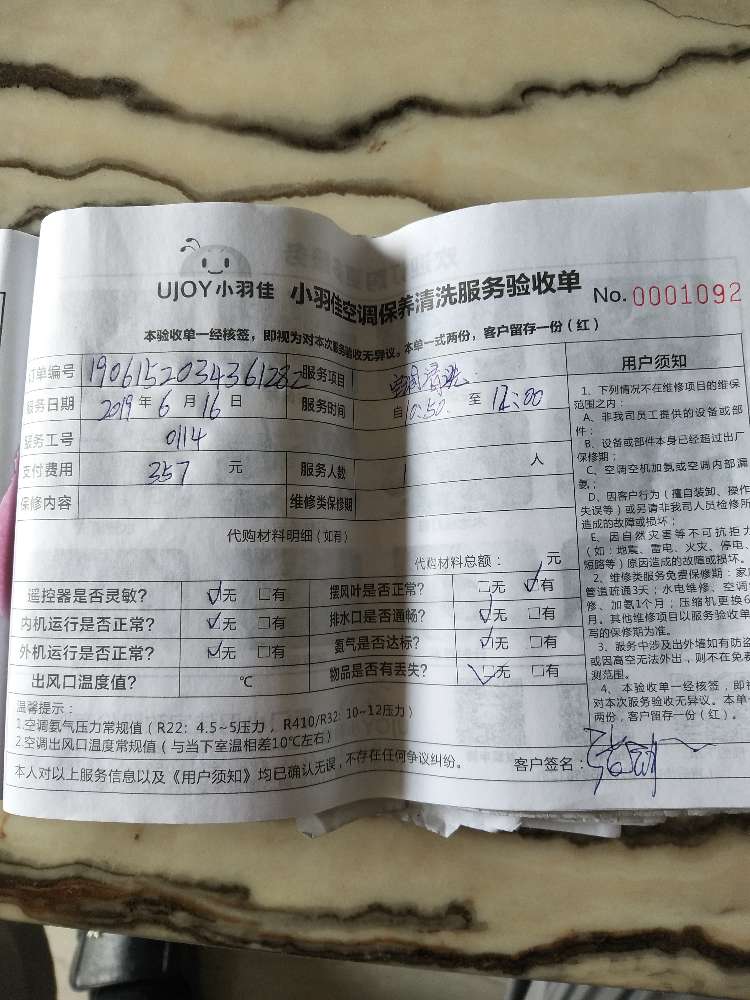 UJOY小羽佳 小羽佳空调保养清洗服务验收单 No. 0001092
本验收单一经核签，即视为对本次服务验收无异议。本单一式两份，客户留存一份（红）
订单编号 190615203436128 服务项目
服务日期 2019年6月16日 服务时间 自10:50至12:00
服务工号 0114
支付费用 357元 服务人数 1人
保修内容 维修类保修期
代购材料明细（如有）
代购材料总额： 元
遥控器是否灵敏？ ☑无 □有 摆风叶是否正常？ □无 ☑有
内机运行是否正常？ ☑无 □有 排水口是否通畅？ ☑无 □有
外机运行是否正常？ ☑无 □有 氨气是否达标？ ☑无 □有
出风口温度值？ ℃ 物品是否有丢失？ ☑无 □有
温馨提示：
1.空调氨气压力常规值（R22：4.5~5压力，R410/R32：10~12压力）
2.空调出风口温度常规值（与当下室温相差10℃左右）
本人对以上服务信息以及《用户须知》均已确认无误，不存在任何争议纠纷。 客户签名：
用户须知
1、下列情况不在维修项目的维保
范围之内：
A、非我司员工提供的设备或部
件；
B、设备或部件本身已经超过出厂
保修期；
C、空调空机加氨或空调内部漏
氨；
D、因客户行为（擅自装卸、操作
失误等）或另请非我司人员检修所
造成的故障或损坏；
E、因自然灾害等不可抗拒力
（如：地震、雷电、火灾、停电、
短路等）原因造成的故障或损坏。
2、维修类服务免费保修期：家
管道疏通3天；水电维修、空调
修、加氨1个月；压缩机更换6
月，其他维修项目以服务验收单
写的保修期为准。
3、服务中涉及出外墙如有防盗
或因高空无法外出，则不在免
测范围。
4、本验收单一经核签，即
对本次服务验收无异议。本单一
两份，客户留存一份（红）。